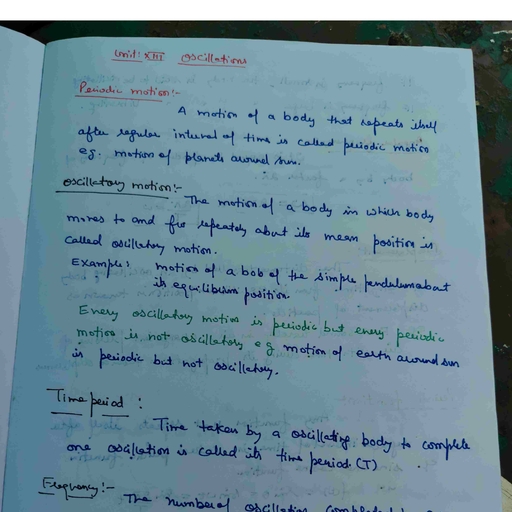 Unit: XIII Oscillations
Periodic motion:-
A motion of a body that repeats itself
after regular interval of time is called periodic motion
eg. motion of planets around sun.
Oscillatory motion:-
The motion of a body in which body
moves to and fro repeately about its mean position is
called oscillatory motion.
Example: motion of a bob of the simple pendulum about
its equilibrium position.
Every oscillatory motion is periodic but every periodic
motion is not oscillatory eg motion of earth around sun
is periodic but not oscillatory.
Time period :
Time taken by a oscillating body to complete
one oscillation is called its time period (T)
Frequency:-
The number of oscillation